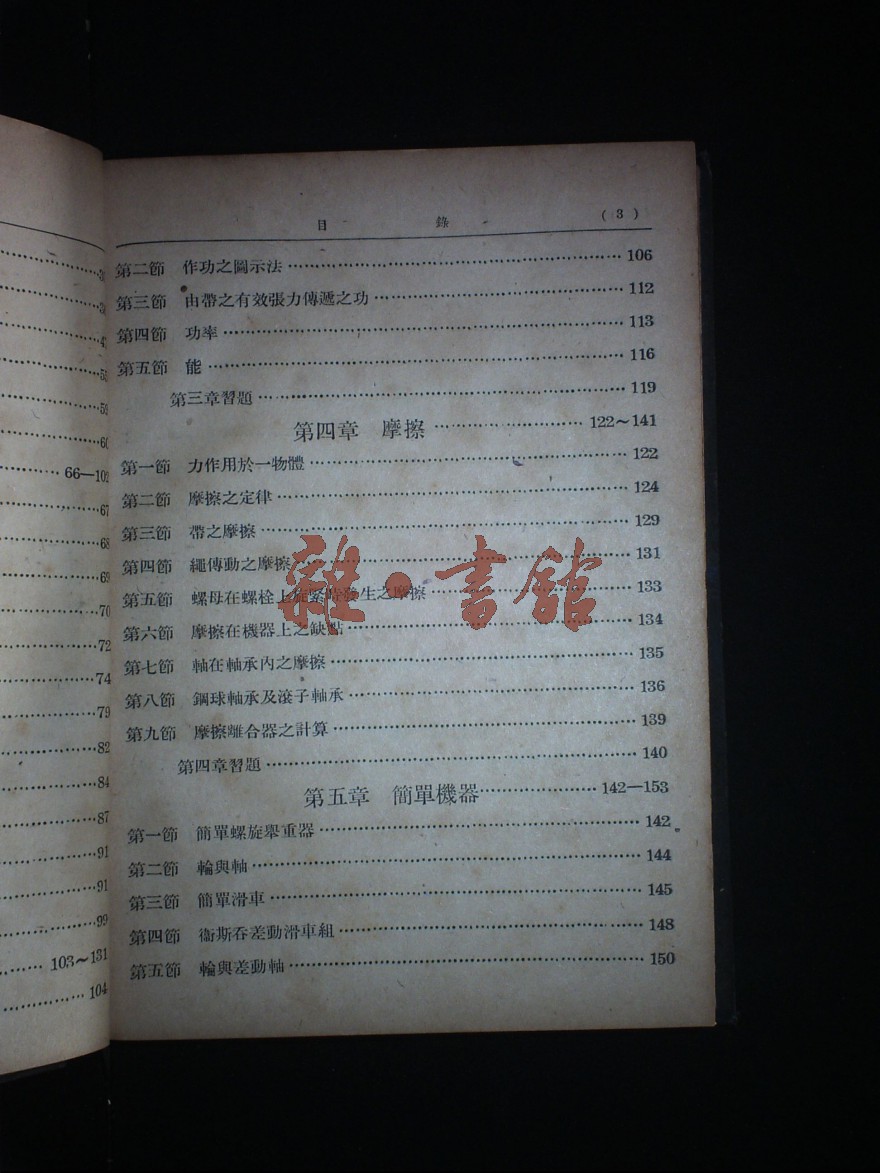 目 錄 (3)
第二節 作功之圖示法 106
第三節 由帶之有效張力傳遞之功 112
第四節 功率 113
第五節 能 116
第三章習題 119
第四章 摩擦 122~141
第一節 力作用於一物體 122
第二節 摩擦之定律 124
第三節 帶之摩擦 129
第四節 繩傳動之摩擦 131
第五節 螺母在螺栓上旋緊時發生之摩擦 133
第六節 摩擦在機器上之缺點 134
第七節 軸在軸承內之摩擦 135
第八節 鋼球軸承及滾子軸承 136
第九節 摩擦離合器之計算 139
第四章習題 140
第五章 簡單機器 142—153
第一節 簡單螺旋舉重器 142
第二節 輪與軸 144
第三節 簡單滑車 145
第四節 衞斯吞差動滑車組 148
第五節 輪與差動軸 150
雜·書舘
58
59
60
66—102
67
68
69
70
72
74
79
82
84
87
91
91
99
103~131
104